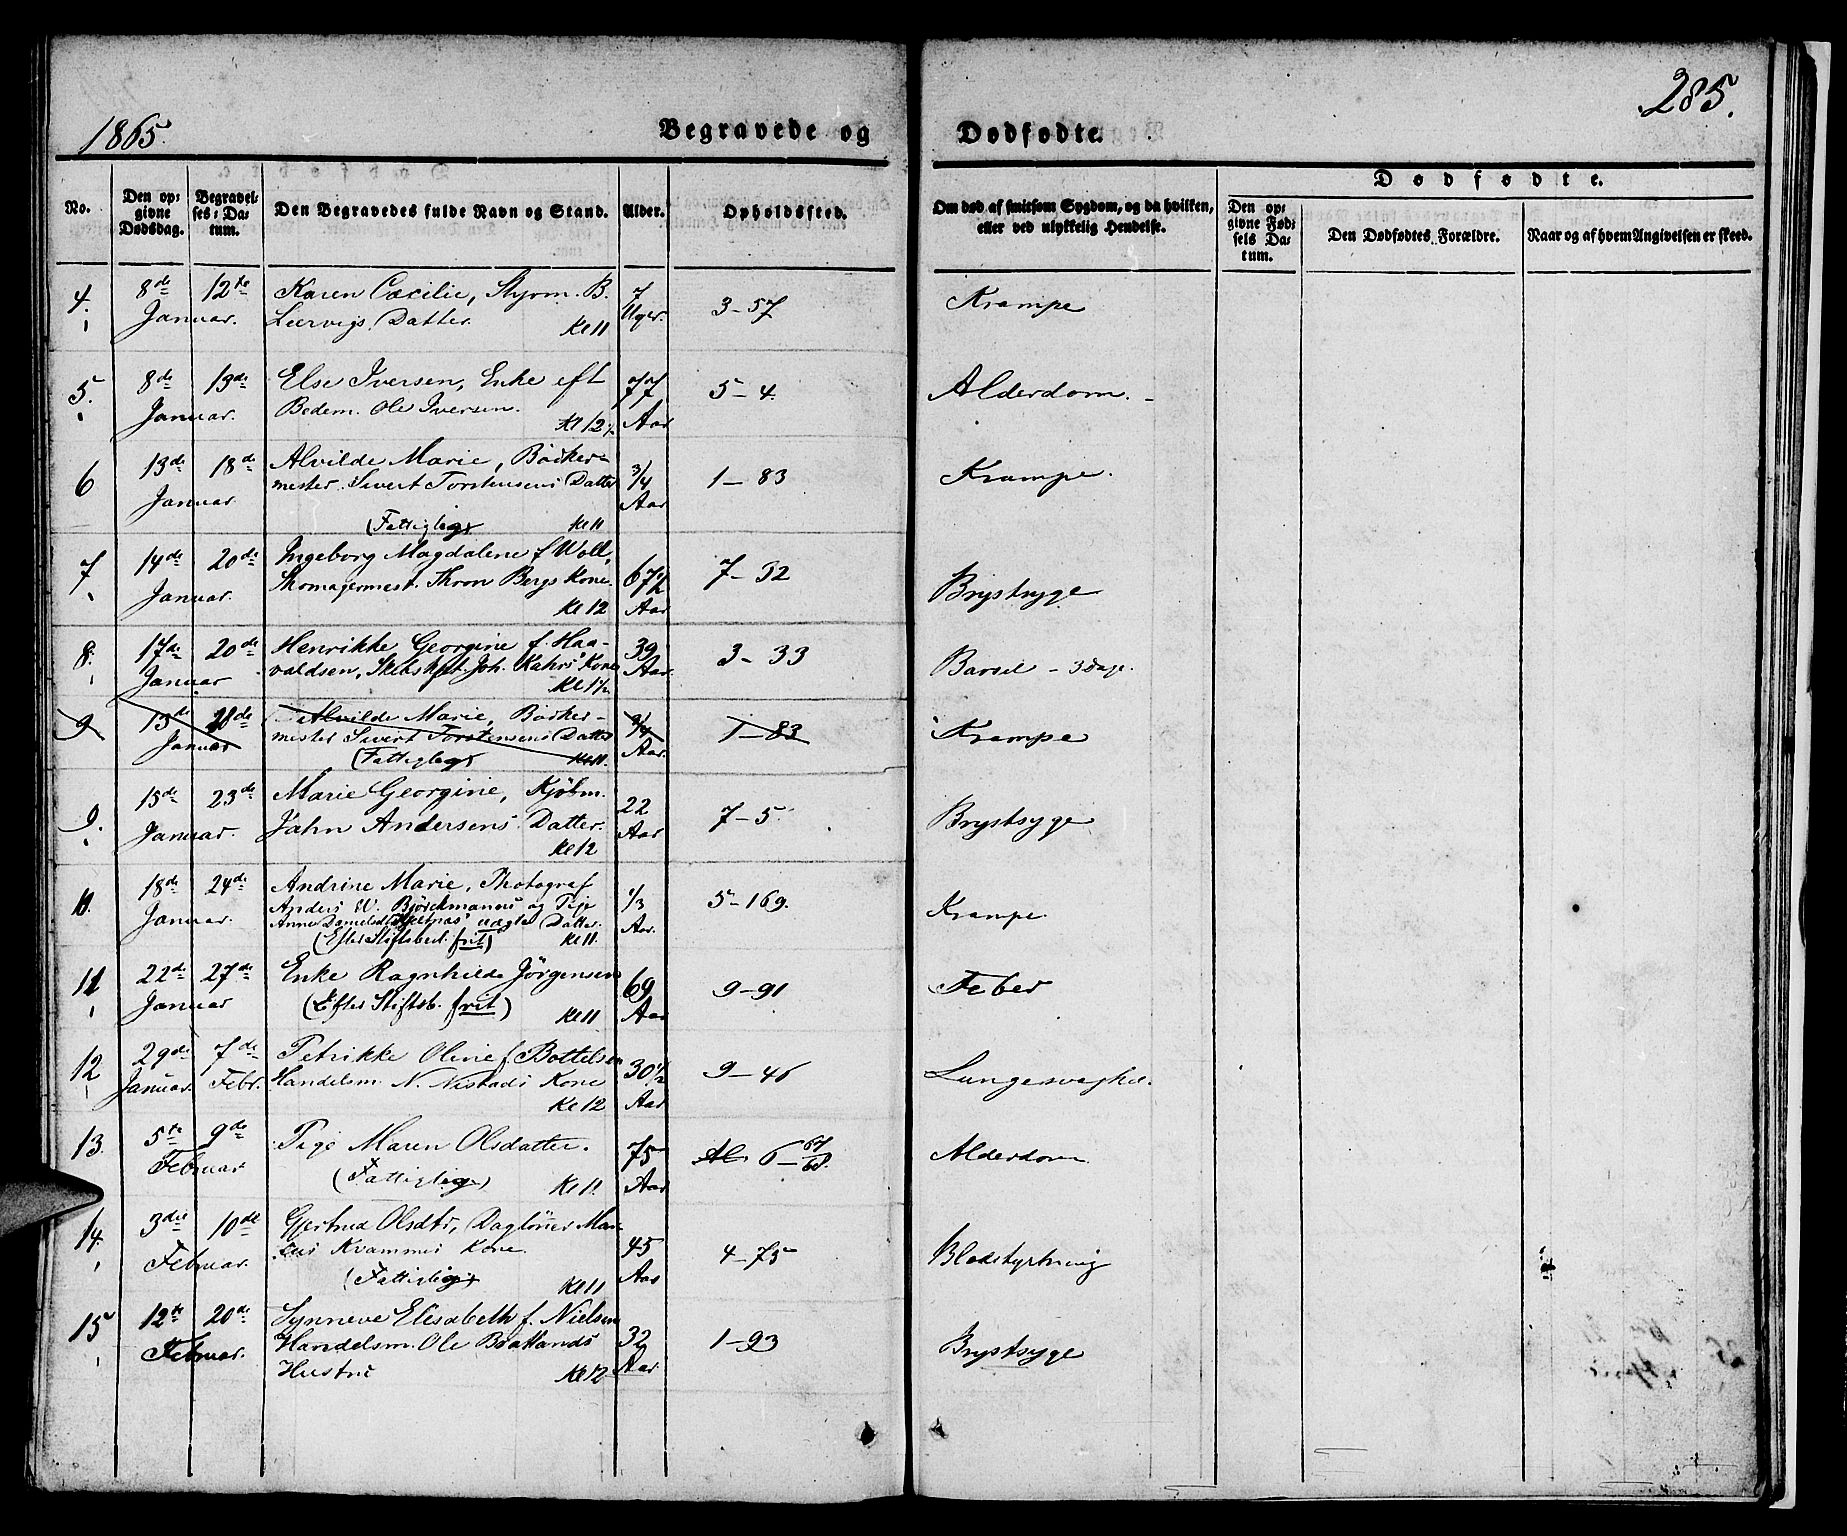 285.
1865.
Begravede og Dødfødte.
No.
Den op=
givne
Dødsdag.
Begravel=
ses=Da=
tum.
Den Begravedes fulde Navn og Stand.
Alder.
Opholdssted.
Om død af smitsom Sygdom, og da hvilken,
eller ved ulykkelig Hendelse.
Dødfødte.
Den op=
givne Fød=
sels Da=
tum.
Den Dødfødtes Forældre.
Naar og af hvem Angivelsen er skeed.
4. 8de 12te Karen Cæcilie, Styrm. B. 7 3-57 Krampe
Januar. Leervigs Datter. Kl 11 Uger.
5. 8de 13de Else Iversen, Enke eft 77 5-4. Alderdom.
Januar. Bedem. Ole Iversen. Kl 12½ Aar
6 13de 18de Alvilde Marie, Bödker= 3/4 1-83 Krampe.
Januar. mester Sivert Torstensens Datter Aar
(Fattiglig) Kl 11
7 14de 20de Ingeborg Magdalene f. Woll, 67½ 7-32 Brystsyge
Januar. Thron Bergs Kone.
Kl 12 Aar
8. 17de 20de Henrikke Georgine f. Haa- 39 3-33 Barsel - 3 Dage.
Januar valdsen, Skibskpt. Joh. Kahrs Kone Aar.
Kl 1½
9 13de 18de Alvilde Marie, Bödker- 3/4 1-83 Krampe
Januar mester Sivert Torstensens Datter Aar.
(Fattiglig) Kl 11.
9. 15de 23de Marie Georgine, Kjöbm. 22 7-5 Brystsyge
Januar. Jahn Andersens Datter. Aar
Kl 12
10. 18de 24de Andrine Marie, Photograf 1/3 5-169. Krampe
Januar. Anders W. Björckmanns og Pige
Anne uægte Datter. Aar.
(Efter Stiftsbevl. frit) Kl 11.
11 22de 27de Enke Ragnhilde Jörgensen 69 9-91 Feber
Januar (Efter Stiftsb. frit) Kl 11 Aar
12 29de 7de Petrikke Oline f. Bottelsen 30½ 9-46 Lungesvaghed.
Januar. Febr. Handelsm. N. Nistads Kone Aar
Kl 12
13. 5te 9de Pige Maren Olsdatter. 75 6-67/68. Alderdom
Februar. (Fattiglig) Kl 11. Aar
14. 3die 10de Gjertrud Olsdtr, Daglöner Ma- 45 4-75 Blodstyrtning
Februar. Kvammes Kone. Aar
(Fattiglig) Kl 11
15 12te 20de Synneve Elisabeth f. Nielsen 32 1-93 Brystsyge
Februar. Handelsm. Ole Baatlands Aar
Hustru Kl 12